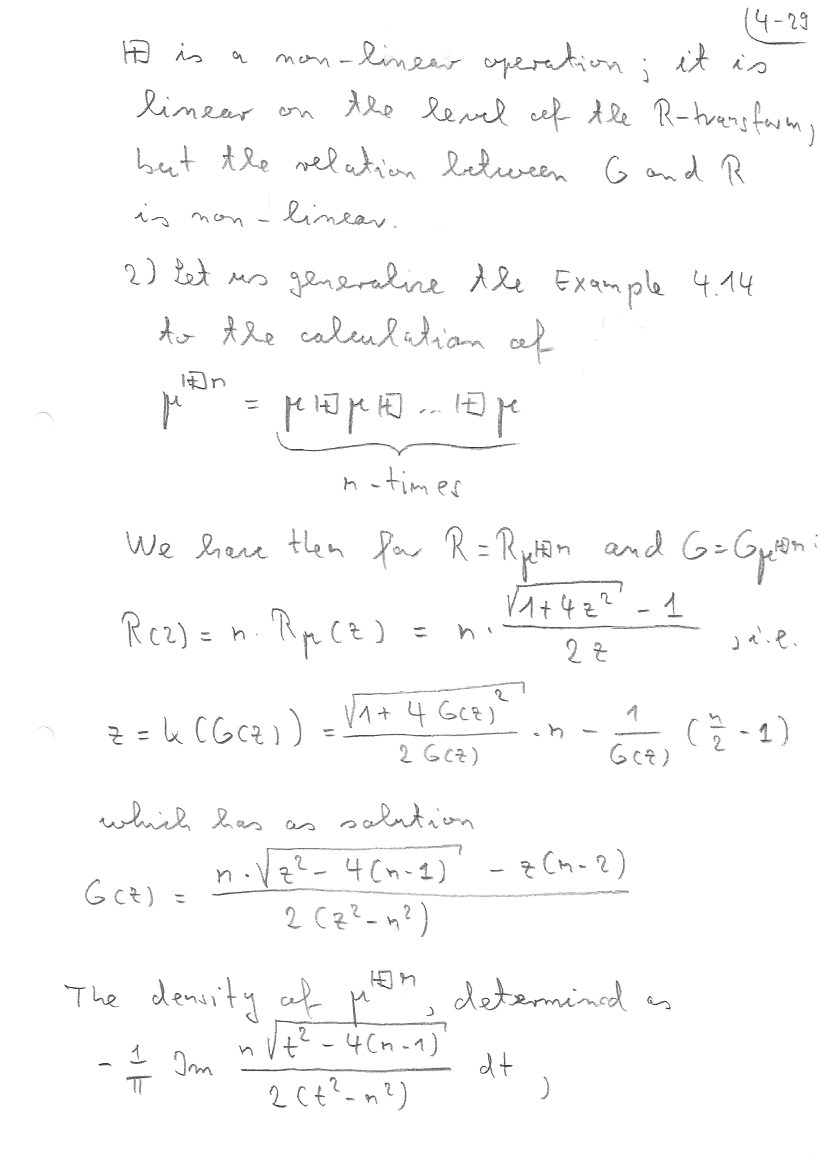 4-29
⊞ is a non-linear operation; it is
linear on the level of the R-transform,
but the relation between G and R
is non-linear.
2) Let us generalize the Example 4.14
to the calculation of
μ^{⊞n} = μ ⊞ μ ⊞ ... ⊞ μ
n-times
We have then for R = R_{μ^{⊞n}} and G = G_{μ^{⊞n}}:
R(z) = n · R_μ(z) = n · (√(1+4z²) - 1)/(2z) , i.e.
z = K(G(z)) = √(1+4G(z)²)/(2G(z)) · n - 1/G(z) (n/2 - 1)
which has as solution
G(z) = (n·√(z² - 4(n-1)) - z(n-2))/(2(z² - n²))
The density of μ^{⊞n}, determined as
-1/π Im n√(t² - 4(n-1))/(2(t² - n²)) dt ,